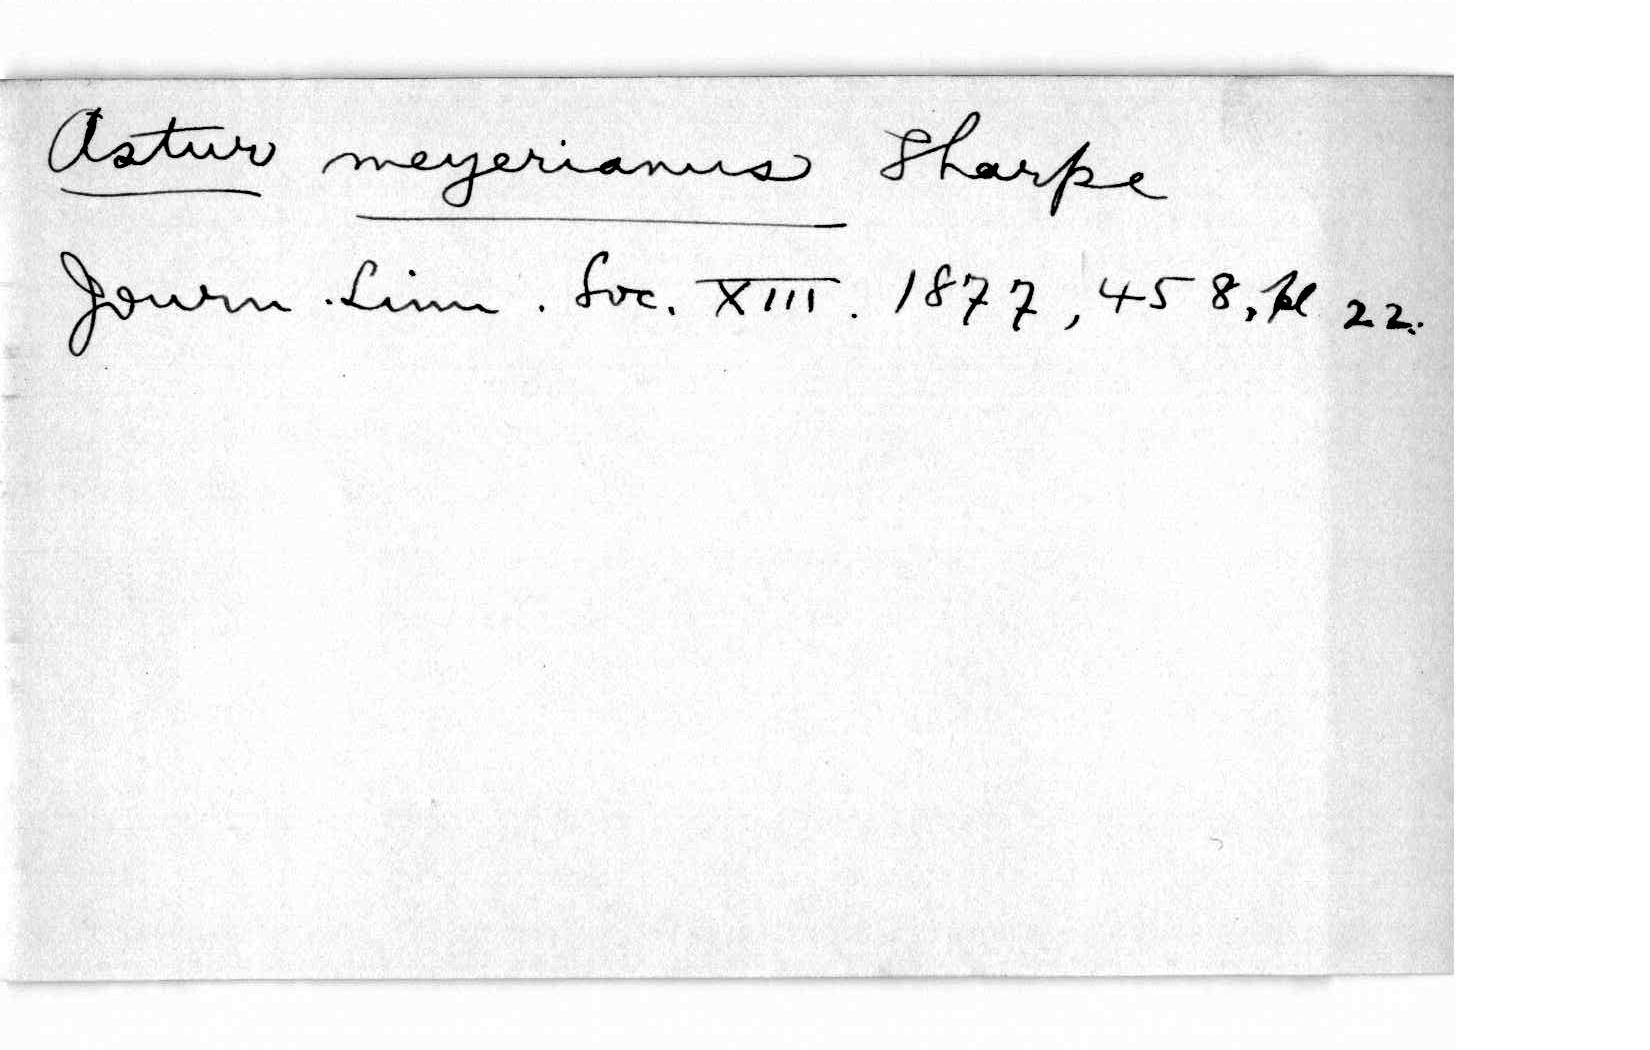 Astur meyerianus Sharpe
Journ. Linn. Soc. XIII. 1877, 458, pl 22.